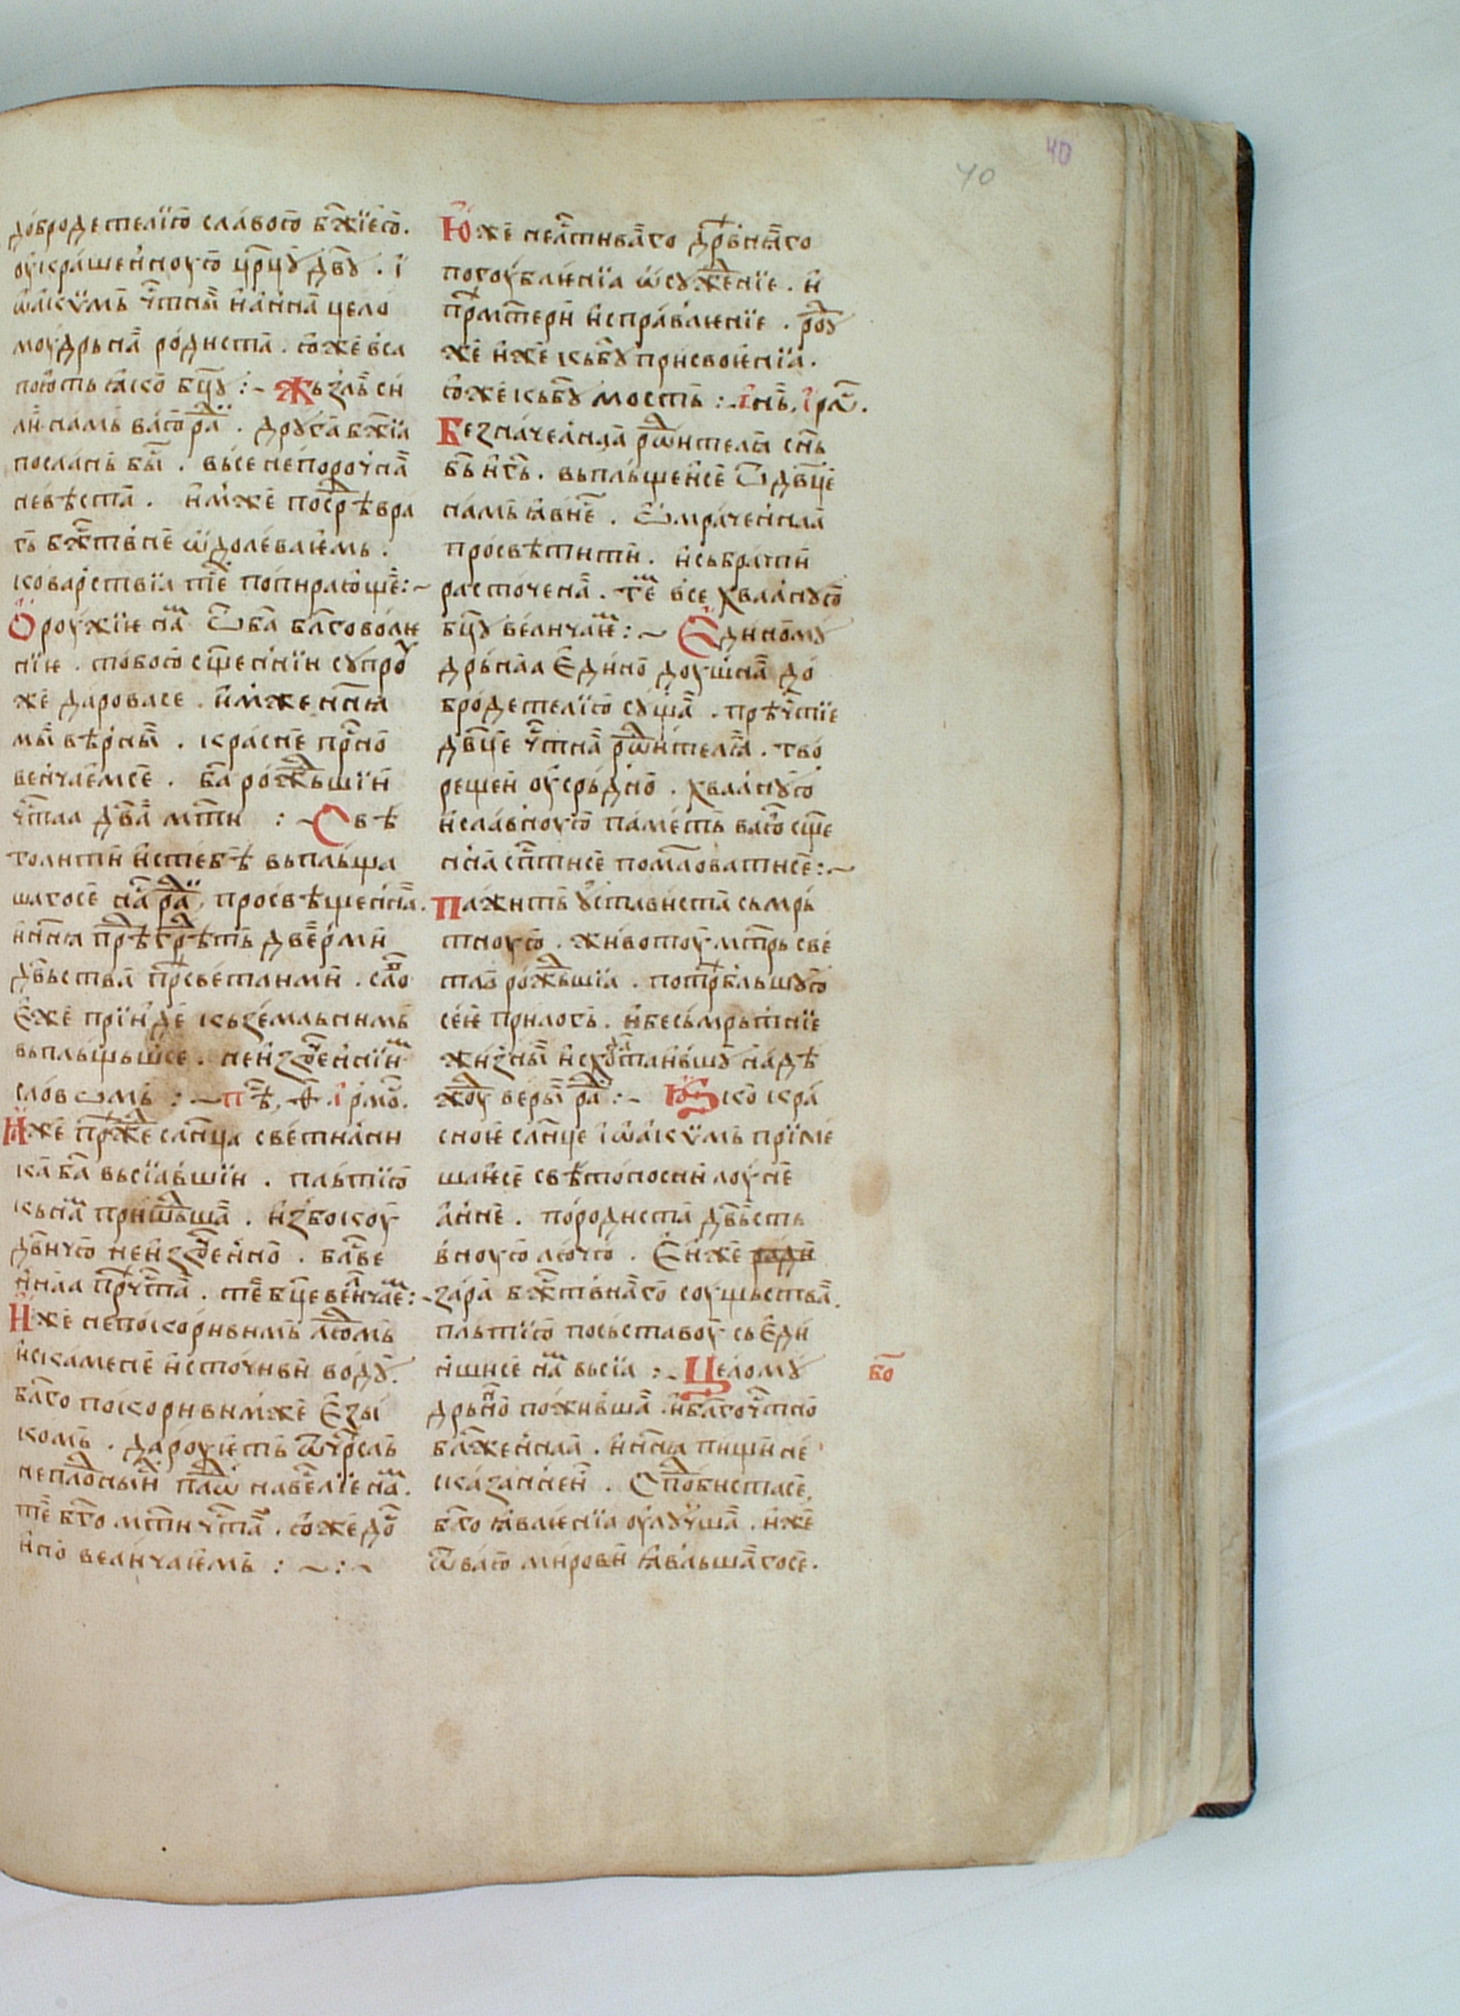 40
70
добродетелїю славою бж҃їею.
оукрашенноую цр҃цу дв҃у . ї
ѡакѵмь чⷭ҇тны и анна цело
моудрьнаа родиста . юже вса
поють ꙗко бц҃у :~ Жьзль си
лы намь ваю раⷣ . друга бж҃їа
послань бы . вьсенепорочнаа
невѣста . имже посрⷣѣ вра
гь бжⷭ҇твне ѡдолеваемь .
коварьствїа тⷨе попирающе :~
Ороужїе наⷨ ѿ ба҃ благоволе
нїе . тобою сщ҃еннїи супроу
же даровасе . имже нн҃ꙗ
мы вѣрныи . красне прⷭ҇но
венчаемсе . ба҃ рожⷣьшїи
чⷭ҇таа дв҃аа мт҃и :~ Свѣ
толити ис тебѣ вьпльща
шагосе на раⷣ , просвѣщеннаа .
и нн҃ꙗ прⷣѣгрⷣѣть дверми
дв҃ьства прⷭ҇ьветлими . слⷪво
еже прїиде кь земльнимь
вьпльщьшесе . неизреченнїиⷨ
словомь :~ пѣⷭ҇ , ѳ҃ ірмоⷭ .
Иже прⷣѣжⷣе слн҃ца светилни
ка ба҃ вьсїавшїи . пльтїю
кь наⷨ пришьⷣша . из бокоу
дв҃ичю неизреченно . блⷭ҇ве
ннаа прⷭ҇чтⷭ҇аа . те бц҃е величаеⷨ :~
Иже непокоривимь людⷨомь
ис камене источиви воду .
благо покоривимже езы
комь . дароуеть ѿ чреⷭ҇ль
неплодьныⷣи плⷣѡ на веⷭ҇лїе наⷨ .
те бг҃о мт҃и чⷭ҇таа . юже до
ино величаемь :~:~
Юже нелⷭ҇тиваго дрⷡевнаго
погоубленїа ѡсужⷣенїе . и
прⷭ҇мт҃ери исправленїе . роⷣу
же иже кь бг҃у присвоенїа .
юже кь бг҃у мость :~ інь , ірⷨа .
Безначелнаа роⷣителꙗ сн҃ь
бь и гⷭ҇ь . вьпльщеисе ѿ дв҃це
намь ꙗвисⷭ҇е . Омраченнаа
просвѣтити . и сьбрати
расточенаа . тⷨе все хвалную
бц҃у величаеⷨ :~ Единому
дрьнаа единодоушнаа до
бродетелїю сущаа . прѣчⷭ҇тїе
дв҃це чⷭ҇тнаа роⷣителꙗ . тво
рещеи оусрьдно . хвалную
и славноую паметь ваю сщ҃е
ннаа сп҃тисе помⷧловатисе :~
Пажить устависта сьмрь
тноую . животоу мт҃рь све
тло рожⷣьшїа . потрⷭ҇бльшую
сее прилогь . и бесьмрьтнїе
жизны исходатаившу надѣ
жⷣоу верниⷨ раⷣ :~ Ꙗко кра
сное слн҃це іѡакѵмь прїме
шаисе свѣтоносни лоуне
анне . породиста дв҃ьсть
вноую лоучю . Ею же ради
зара бжⷭ҇твнаго соущьства .
пльтїю по сьставоу сьеди
ншисе наⷨ вьсїа :~ Целому
бо҃
дрьно поживша . и блгочⷭ҇тно
блженнаа . и нн҃ꙗ пищи не
сказаннеи . Сподⷣобистасе
бг҃о ꙗвленїа оулучша . иже
ѿ ваю мирови ꙗвльшагосе .